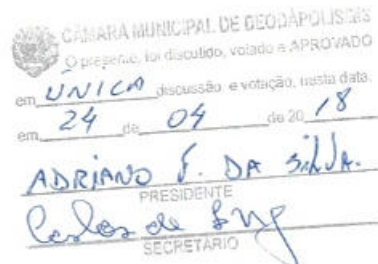 CÂMARA MUNICIPAL DE DEODÁPOLIS/MS
O presente, foi discutido, votado e APROVADO
em ÚNICA discussão e votação, nesta data.
em 24 de 04 de 20 18
ADRIANO J. DA SILVA.
PRESIDENTE
Carlos de
SECRETÁRIO